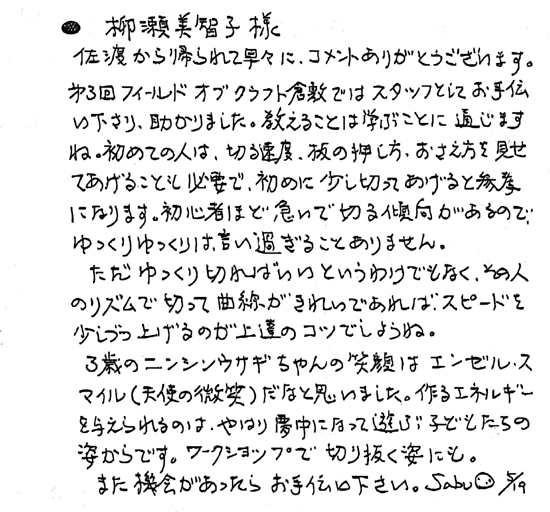 ● 柳瀬美智子様
佐渡から帰られて早々に、コメントありがとうございます。
第3回フィールド オブ クラフト倉敷ではスタッフとしてお手伝
い下さり、助かりました。教えることは学ぶことに通じます
ね。初めての人は、切る速度、板の押し方、おさえ方を見せ
てあげることも必要で、初めに少し切ってあげると参考
になります。初心者ほど急いで切る傾向があるので、
ゆっくりゆっくりは、言い過ぎることありません。
ただゆっくり切ればいいというわけでもなく、その人
のリズムで切って曲線がきれいであれば、スピードを
少しづつ上げるのが上達のコツでしょうね。
3歳のニンシンウサギちゃんの笑顔はエンゼル・ス
マイル(天使の微笑)だなと思いました。作るエネルギー
を与えられるのは、やはり夢中になって遊ぶ子どもたちの
姿からです。ワークショップで切り抜く姿にも。
また機会があったらお手伝い下さい。Sabu 5/19